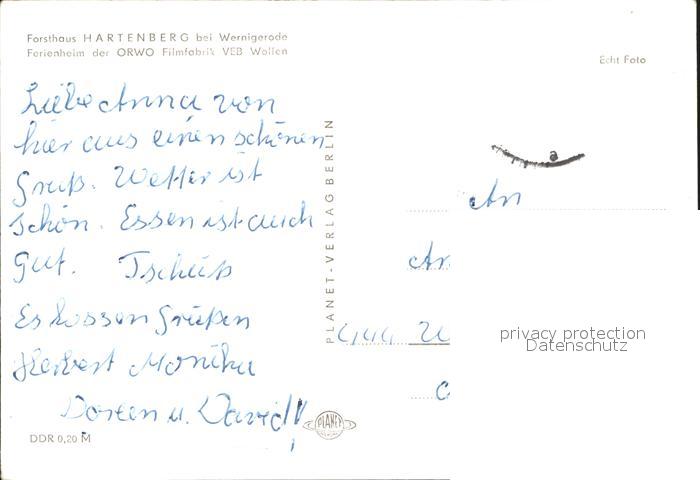 Forsthaus HARTENBERG bei Wernigerode
Ferienheim der ORWO Filmfabrik VEB Wolfen
Echt Foto
Liebe Anna von
hier aus einen schönen
Gruß. Wetter ist
schön. Essen ist auch
gut. Tschüß
Es lassen Grüßen
Herbert Monika
Doreen u. David!
PLANET-VERLAG BERLIN
a
An
An
444 W
privacy protection
Datenschutz
PLANET
DDR 0,20 M